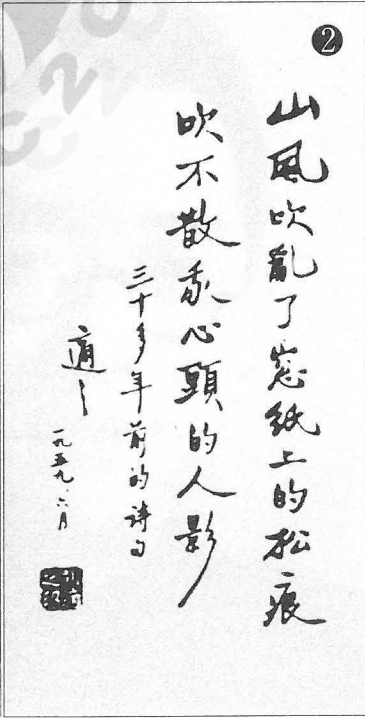 2
山風吹亂了窓紙上的松痕
吹不散我心頭的人影
三十多年前的詩句
適之
一九五九、六月